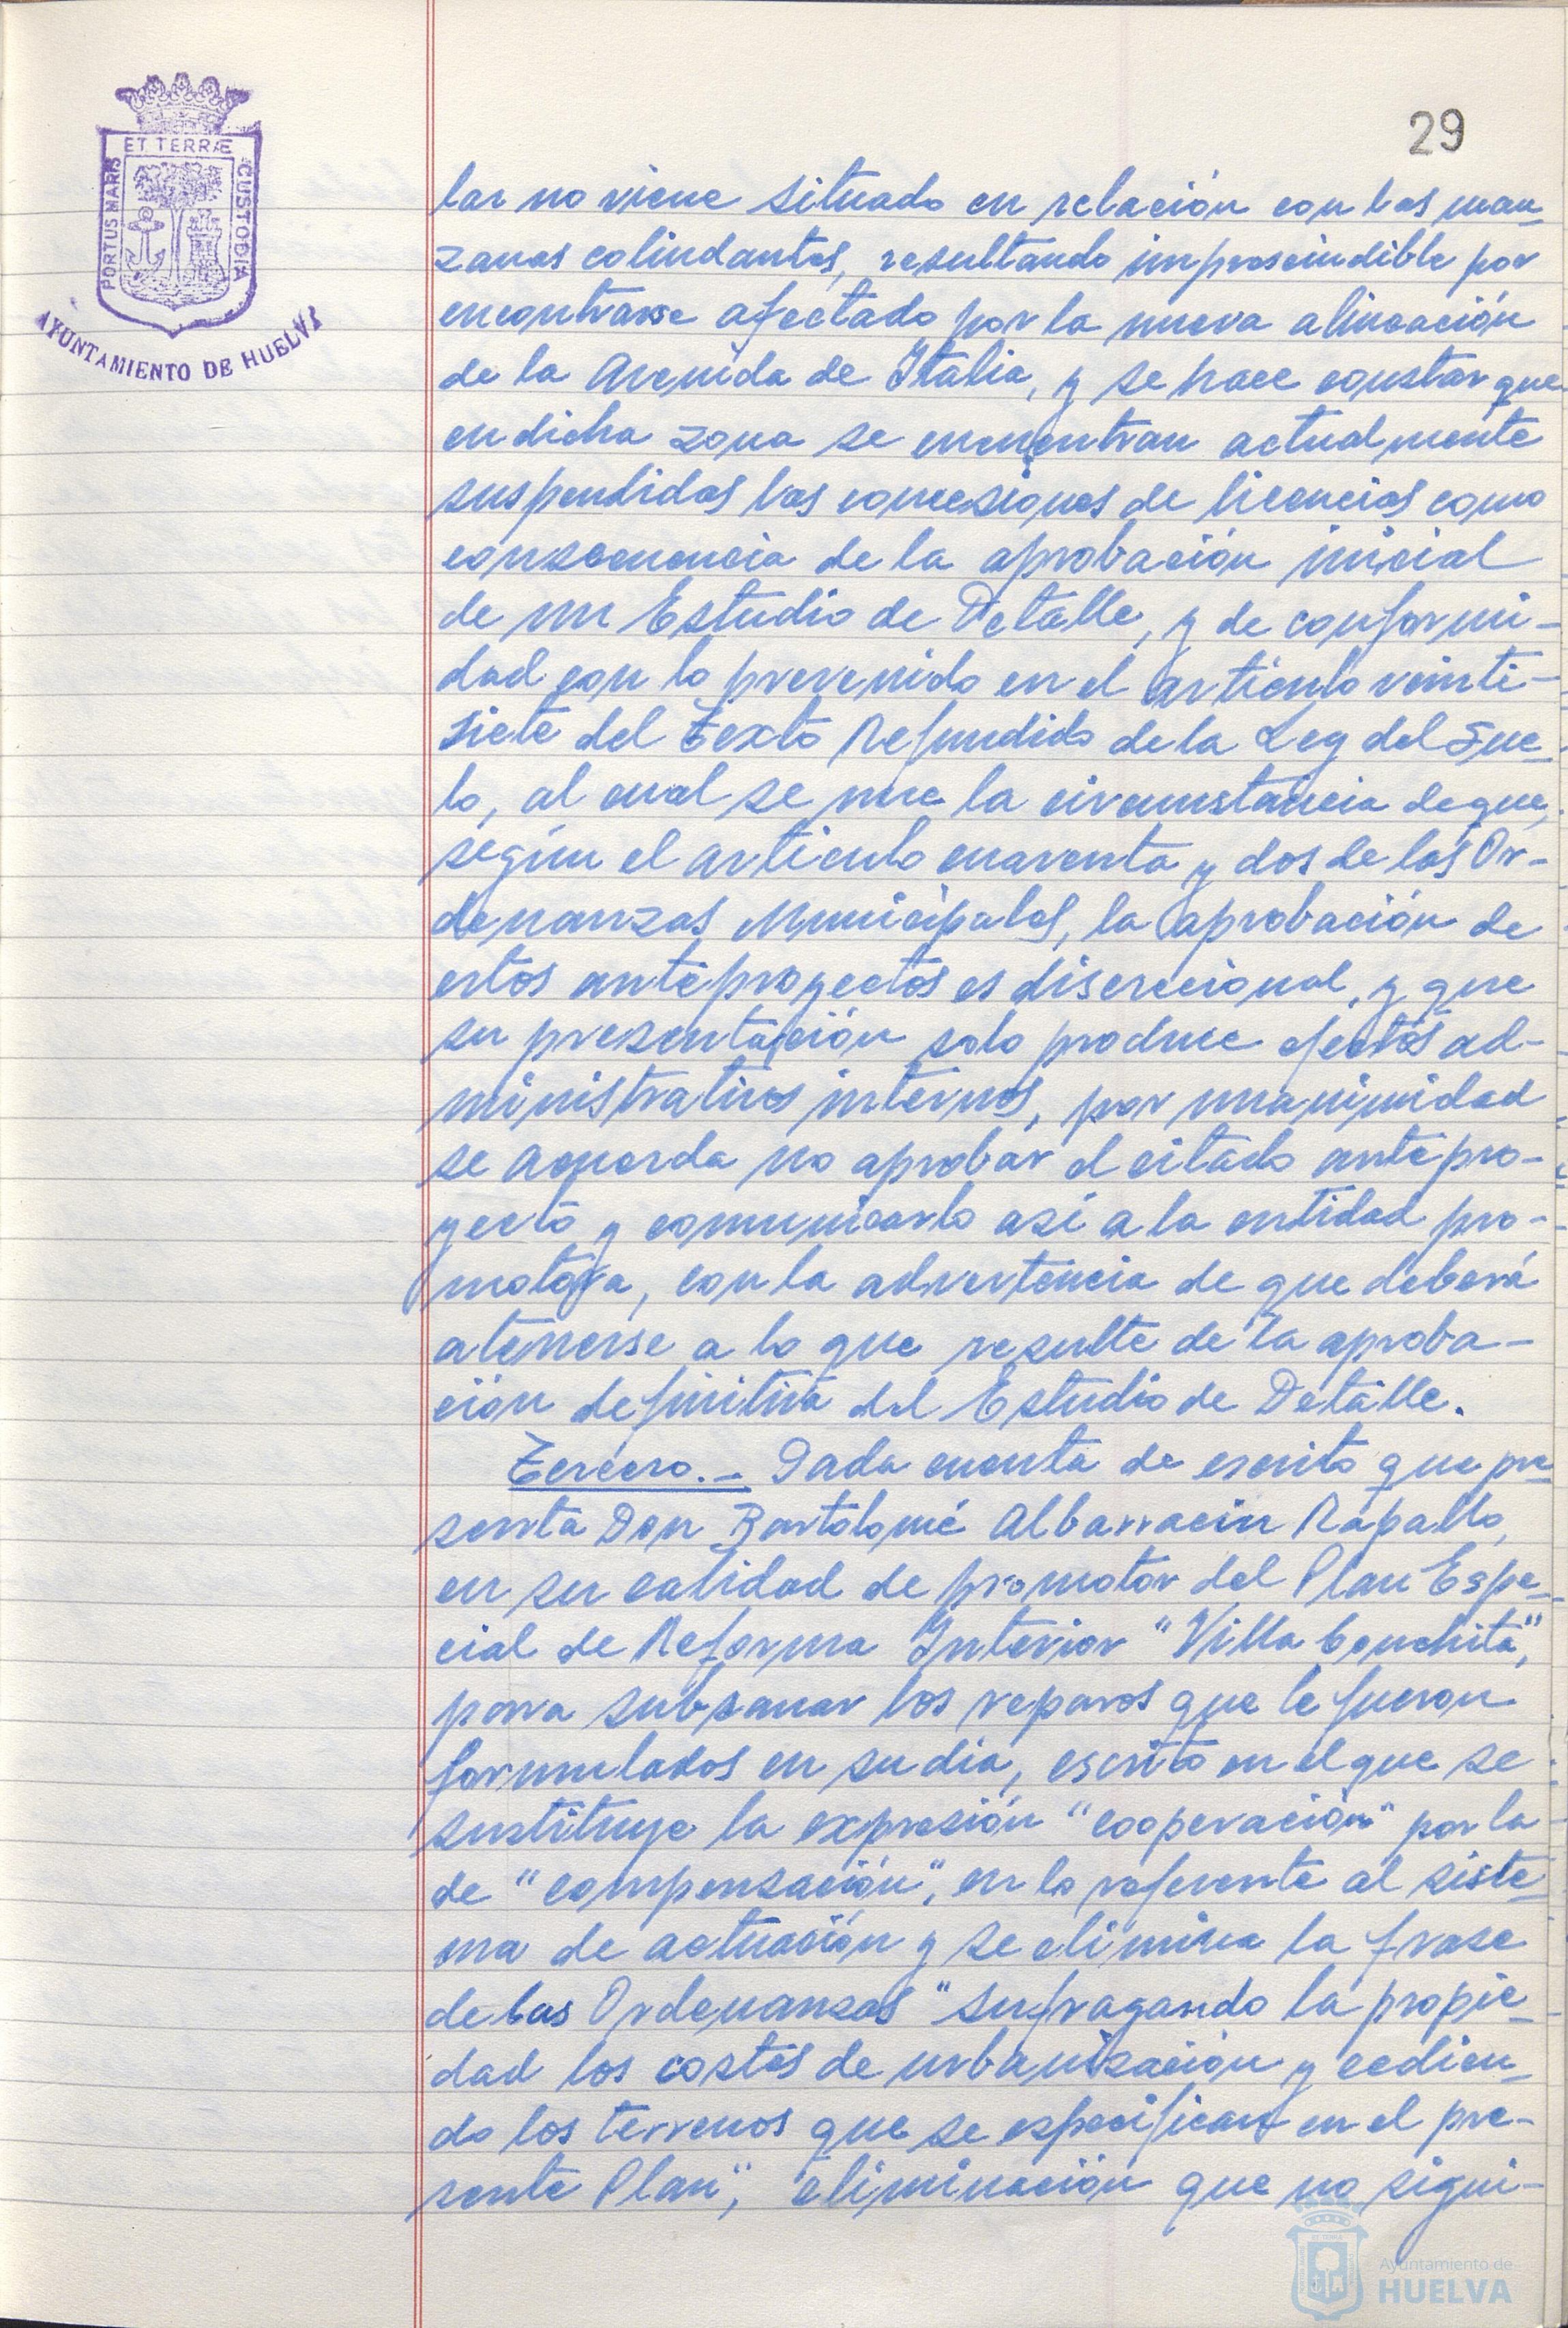 ET TERRÆ
PORTUS MARIS
CUSTODIA
AYUNTAMIENTO DE HUELVA
29
lar no viene situado en relación con las man-
zanas colindantes, resultando imprescindible por
encontrarse afectado por la nueva alineación
de la Avenida de Italia, y se hace constar que
en dicha zona se encuentran actualmente
suspendidas las concesiones de licencias como
consecuencia de la aprobación inicial
de un Estudio de Detalle, y de conformi-
dad con lo prevenido en el artículo veinti-
siete del Texto Refundido de la Ley del Sue-
lo, al cual se une la circunstancia de que,
según el artículo cuarenta y dos de las Or-
denanzas Municipales, la aprobación de
estos anteproyectos es discrecional, y que
su presentación solo produce efectos ad-
ministrativos internos, por unanimidad
se acuerda no aprobar el citado antepro-
yecto y comunicarlo así a la entidad pro-
motora, con la advertencia de que deberá
atenerse a lo que resulte de la aproba-
ción definitiva del Estudio de Detalle.
Tercero.- Dada cuenta de escrito que pre-
senta Don Bartolomé Albarracin Rapallo,
en su calidad de promotor del Plan Espe-
cial de Reforma Interior "Villa Conchita",
para subsanar los reparos que le fueron
formulados en su dia, escrito en el que se
sustituye la expresión "cooperación" por la
de "compensación", en lo referente al siste-
ma de actuación y se elimina la frase
de las Ordenanzas "sufragando la propie-
dad los costes de urbanización y cedien-
do los terrenos que se especifican en el pre-
sente Plan", eliminación que no signi-
Ayuntamiento de
HUELVA